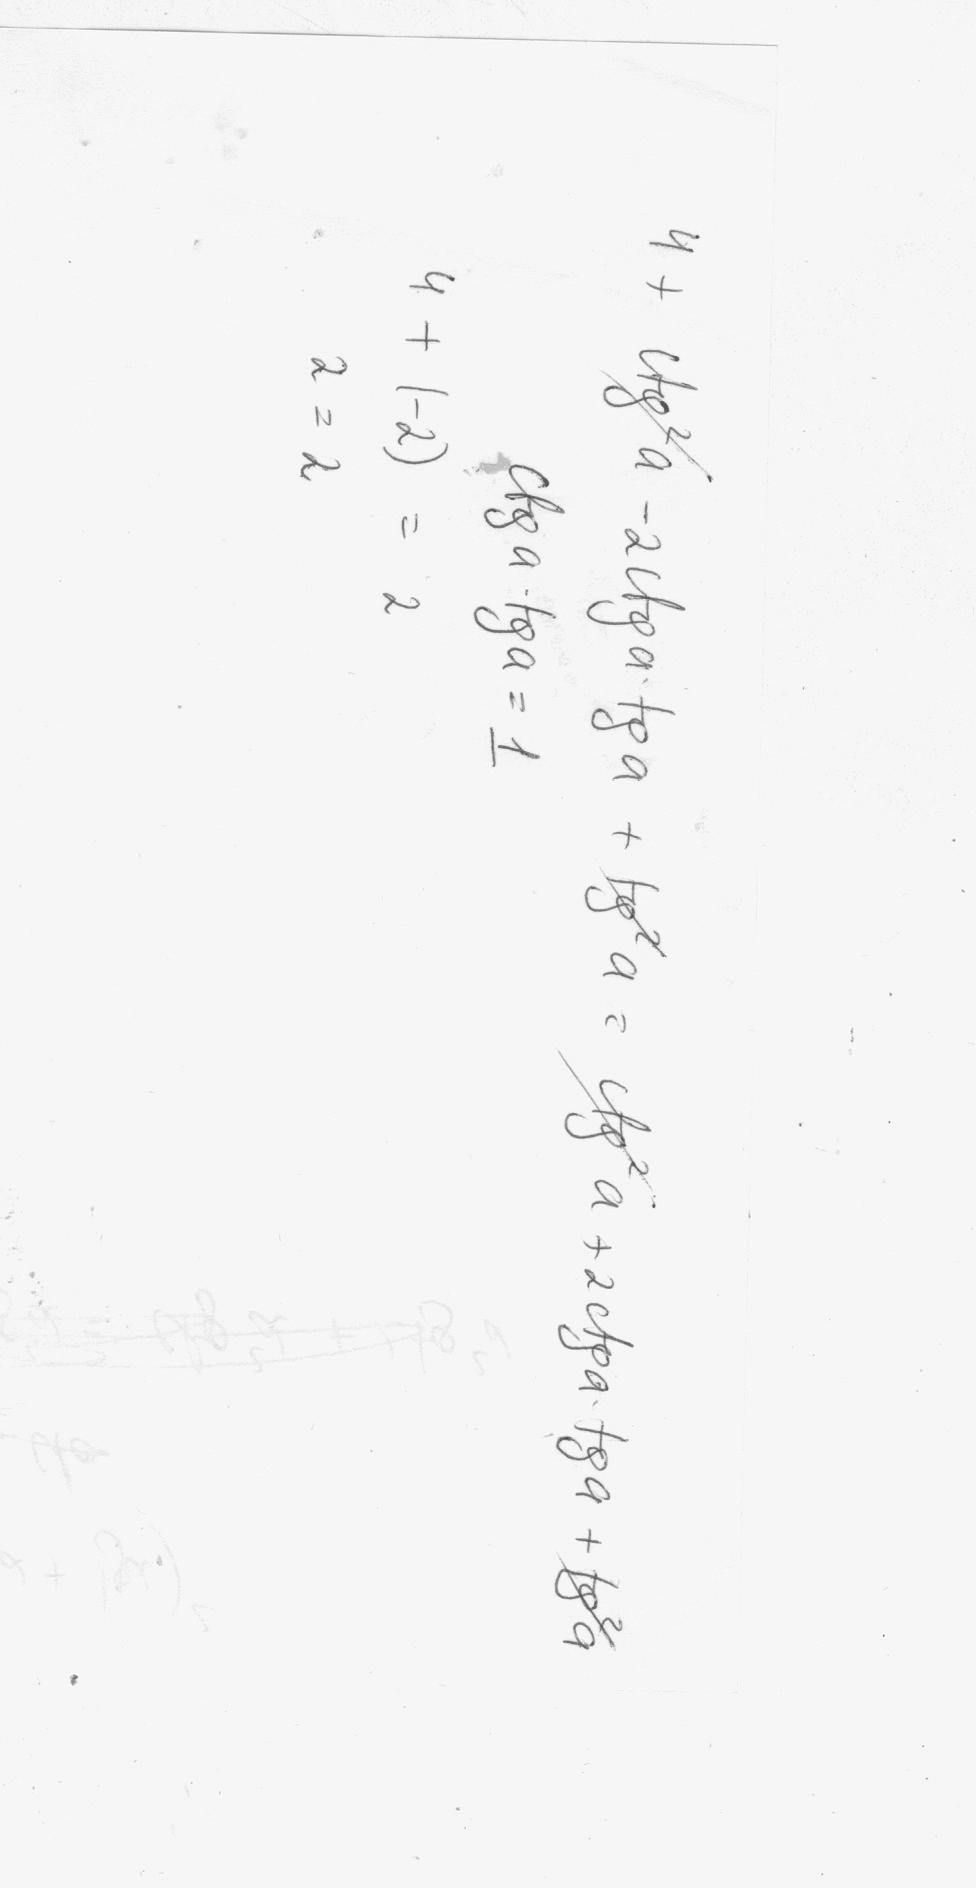 4 + ctg²a - 2ctga·tga + tg²a = ctg²a + 2ctga·tga + tg²a
ctga·tga = 1
4 + (-2) = 2
2 = 2